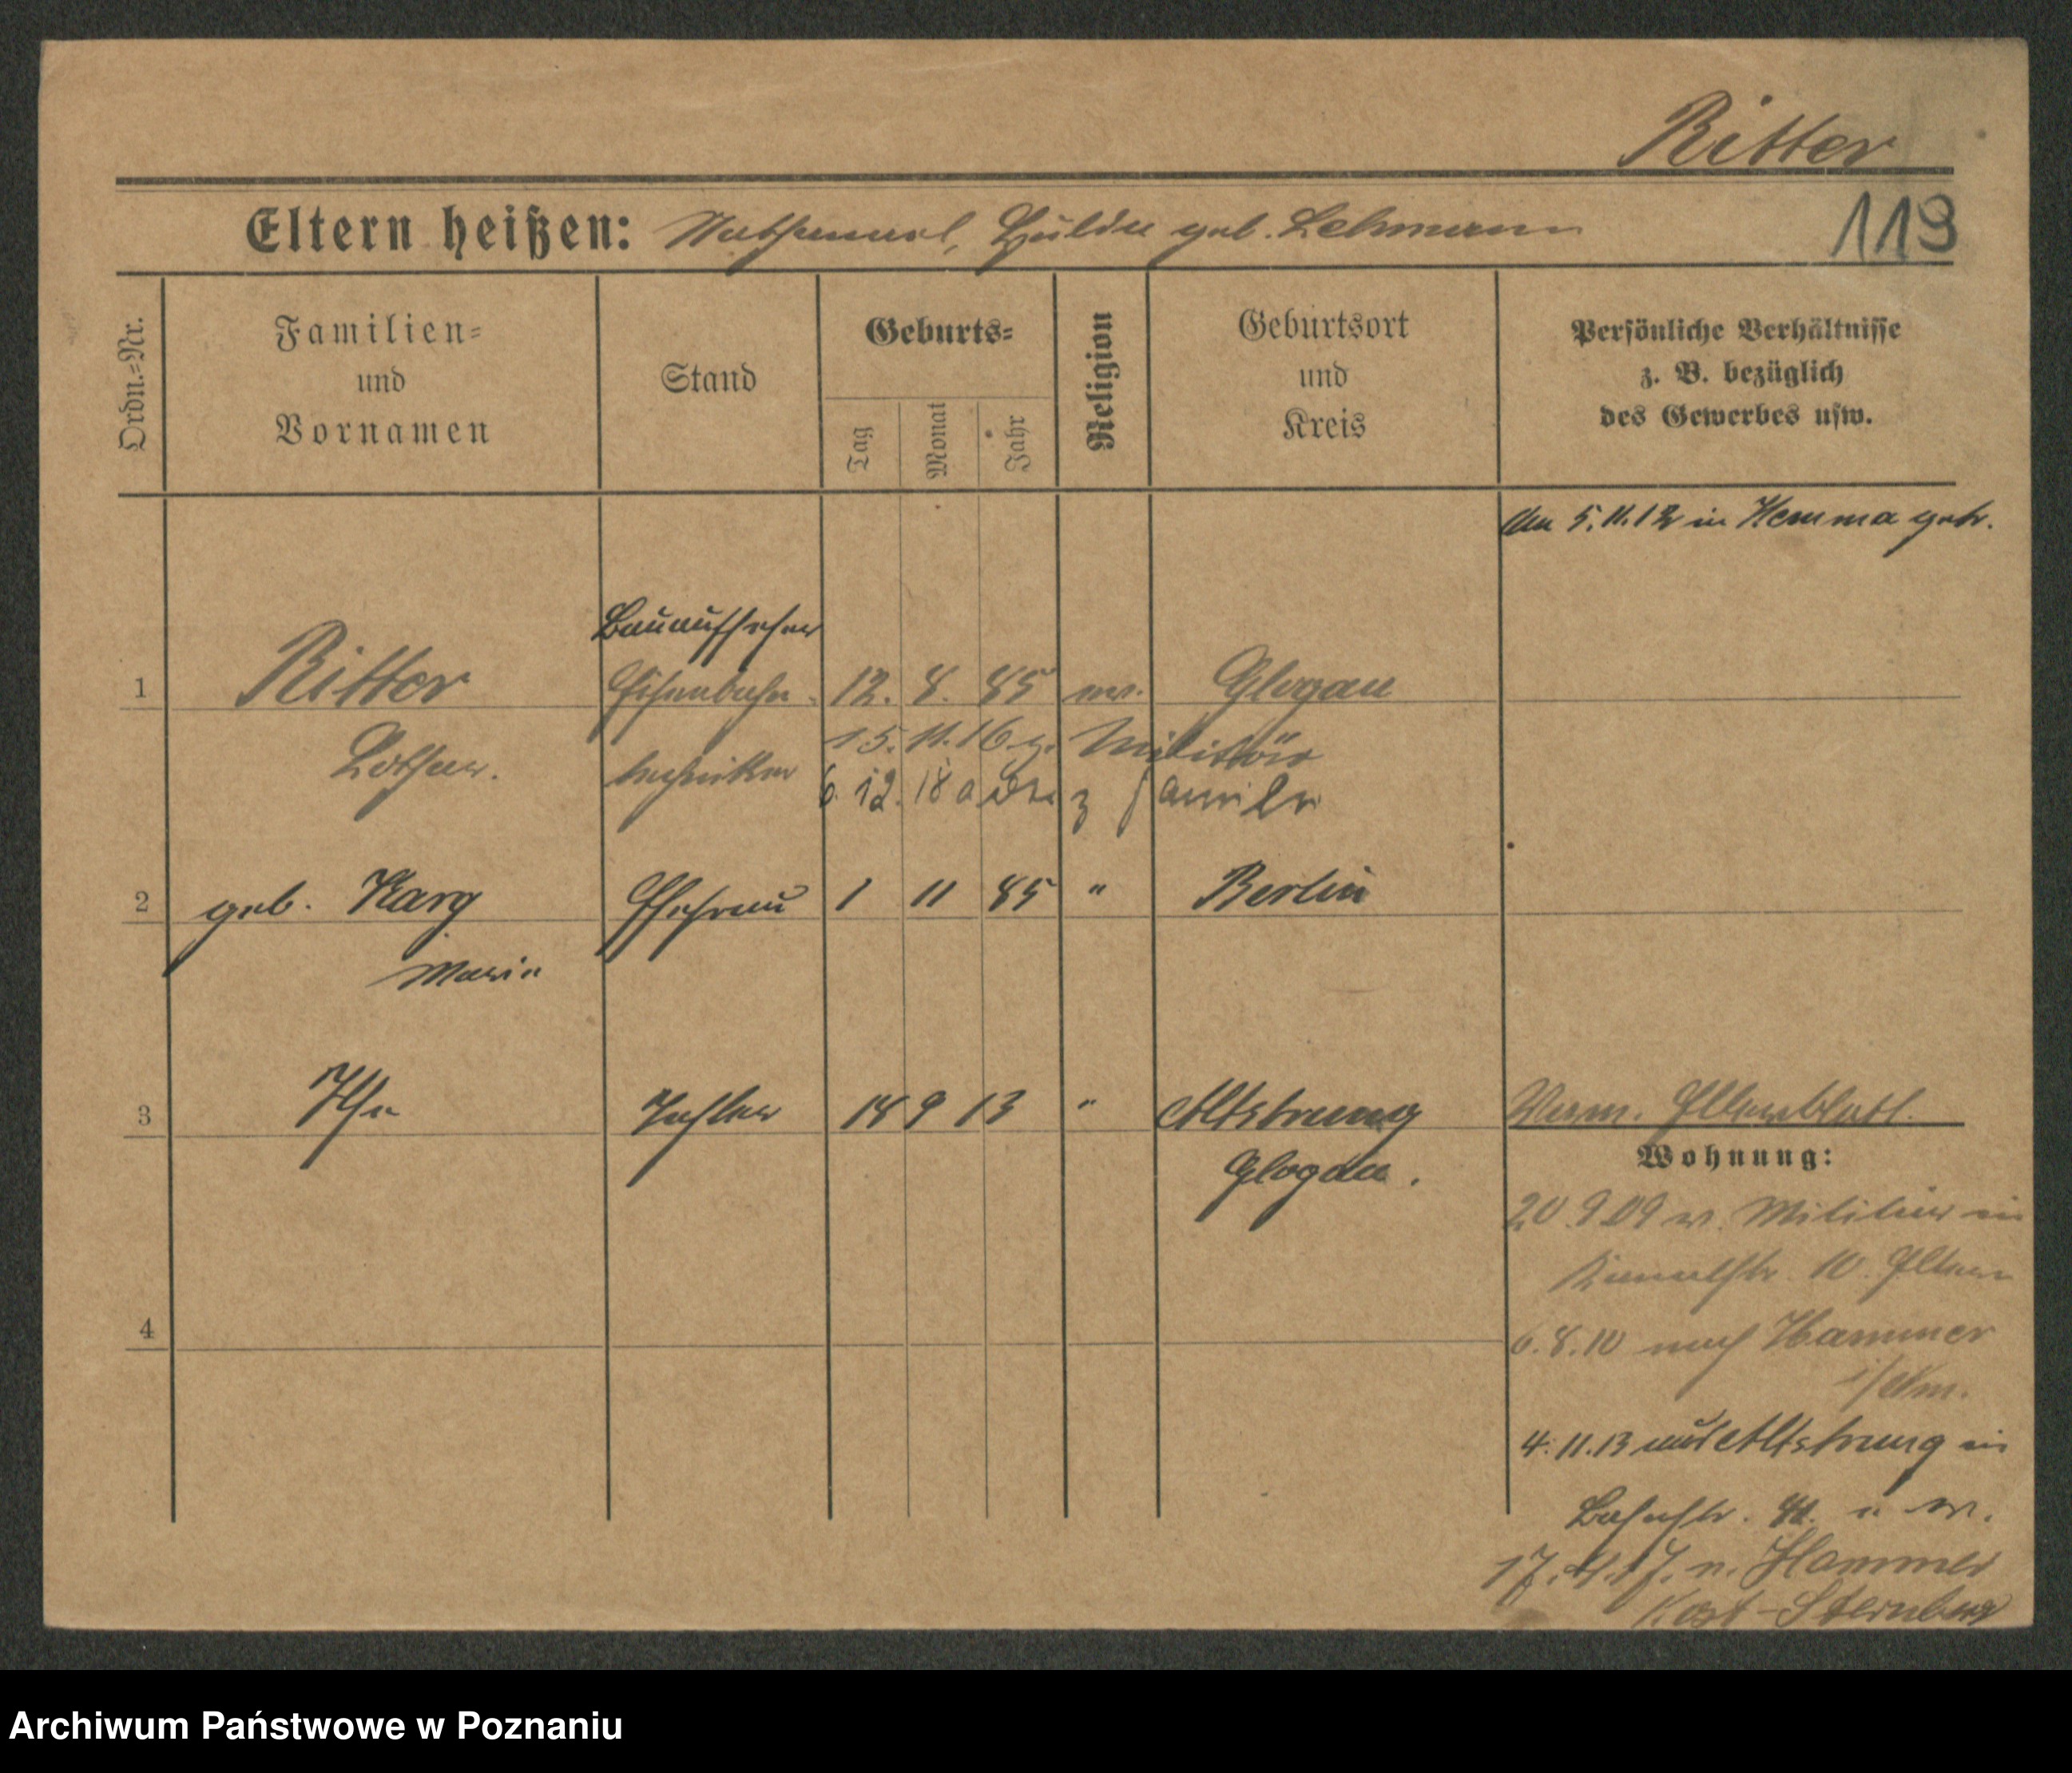 Ritter
Eltern heißen: Nathanael, Hulda geb. Lehmann
119
Ordn.=Nr.
Familien=
und
Vornamen
Stand
Geburts=
Tag
Monat
Jahr
Religion
Geburtsort
und
Kreis
Persönliche Verhältnisse
z. B. bezüglich
des Gewerbes usw.
Am 5.11.12 in getr.
Bauaufseher
1 Ritter Eisenbahn- 12. 8. 85 ev. Glogau
Lothar. techniker
15. 11. 16 z. Militär
6. 12. 18 z Familie
2 geb. Karg Ehefrau 1 11 85 " Berlin
Maria
3 Ilse Tochter 14 9 13 " Altstrunz
Glogau.
Elternblatt.
Wohnung:
20.9.09 v. Militär in
10. Eltern
6.8.10 nach Hammer
4
4.11.13 aus Altstrunz in
Bahnstr.
17. n. Hammer
Kr. Ost-Sternberg
Archiwum Państwowe w Poznaniu